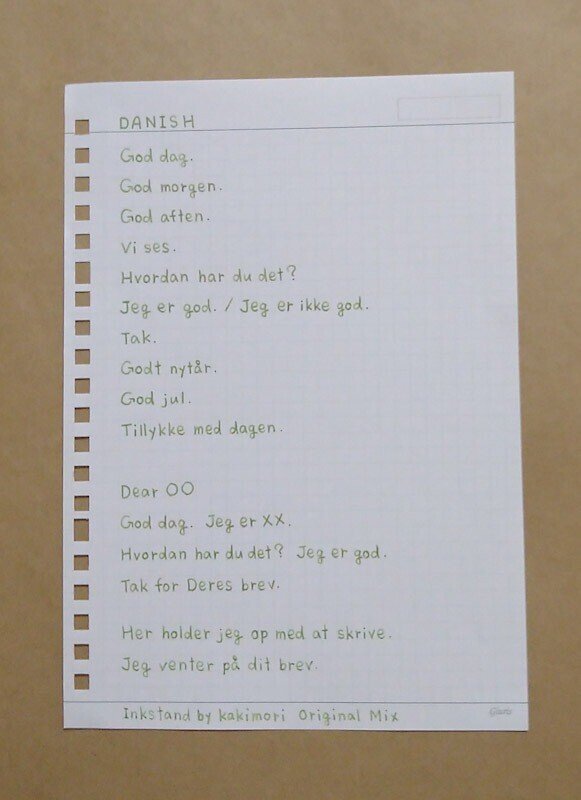 DANISH
God dag.
God morgen.
God aften.
Vi ses.
Hvordan har du det?
Jeg er god. / Jeg er ikke god.
Tak.
Godt nytår.
God jul.
Tillykke med dagen.
Dear OO
God dag. Jeg er XX.
Hvordan har du det? Jeg er god.
Tak for Deres brev.
Her holder jeg op med at skrive.
Jeg venter på dit brev.
Inkstand by kakimori Original Mix